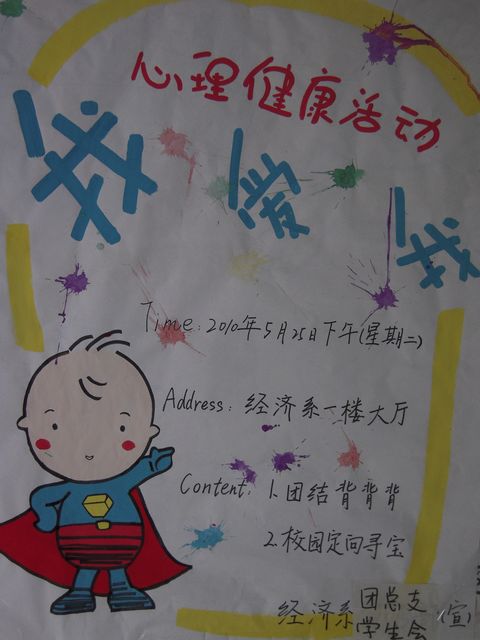 心理健康活动
我爱我
Time: 2010年5月25日下午(星期二)
Address: 经济系一楼大厅
Content: 1.团结背背背
2.校园定向寻宝
经济系 团总支 (宣)
学生会